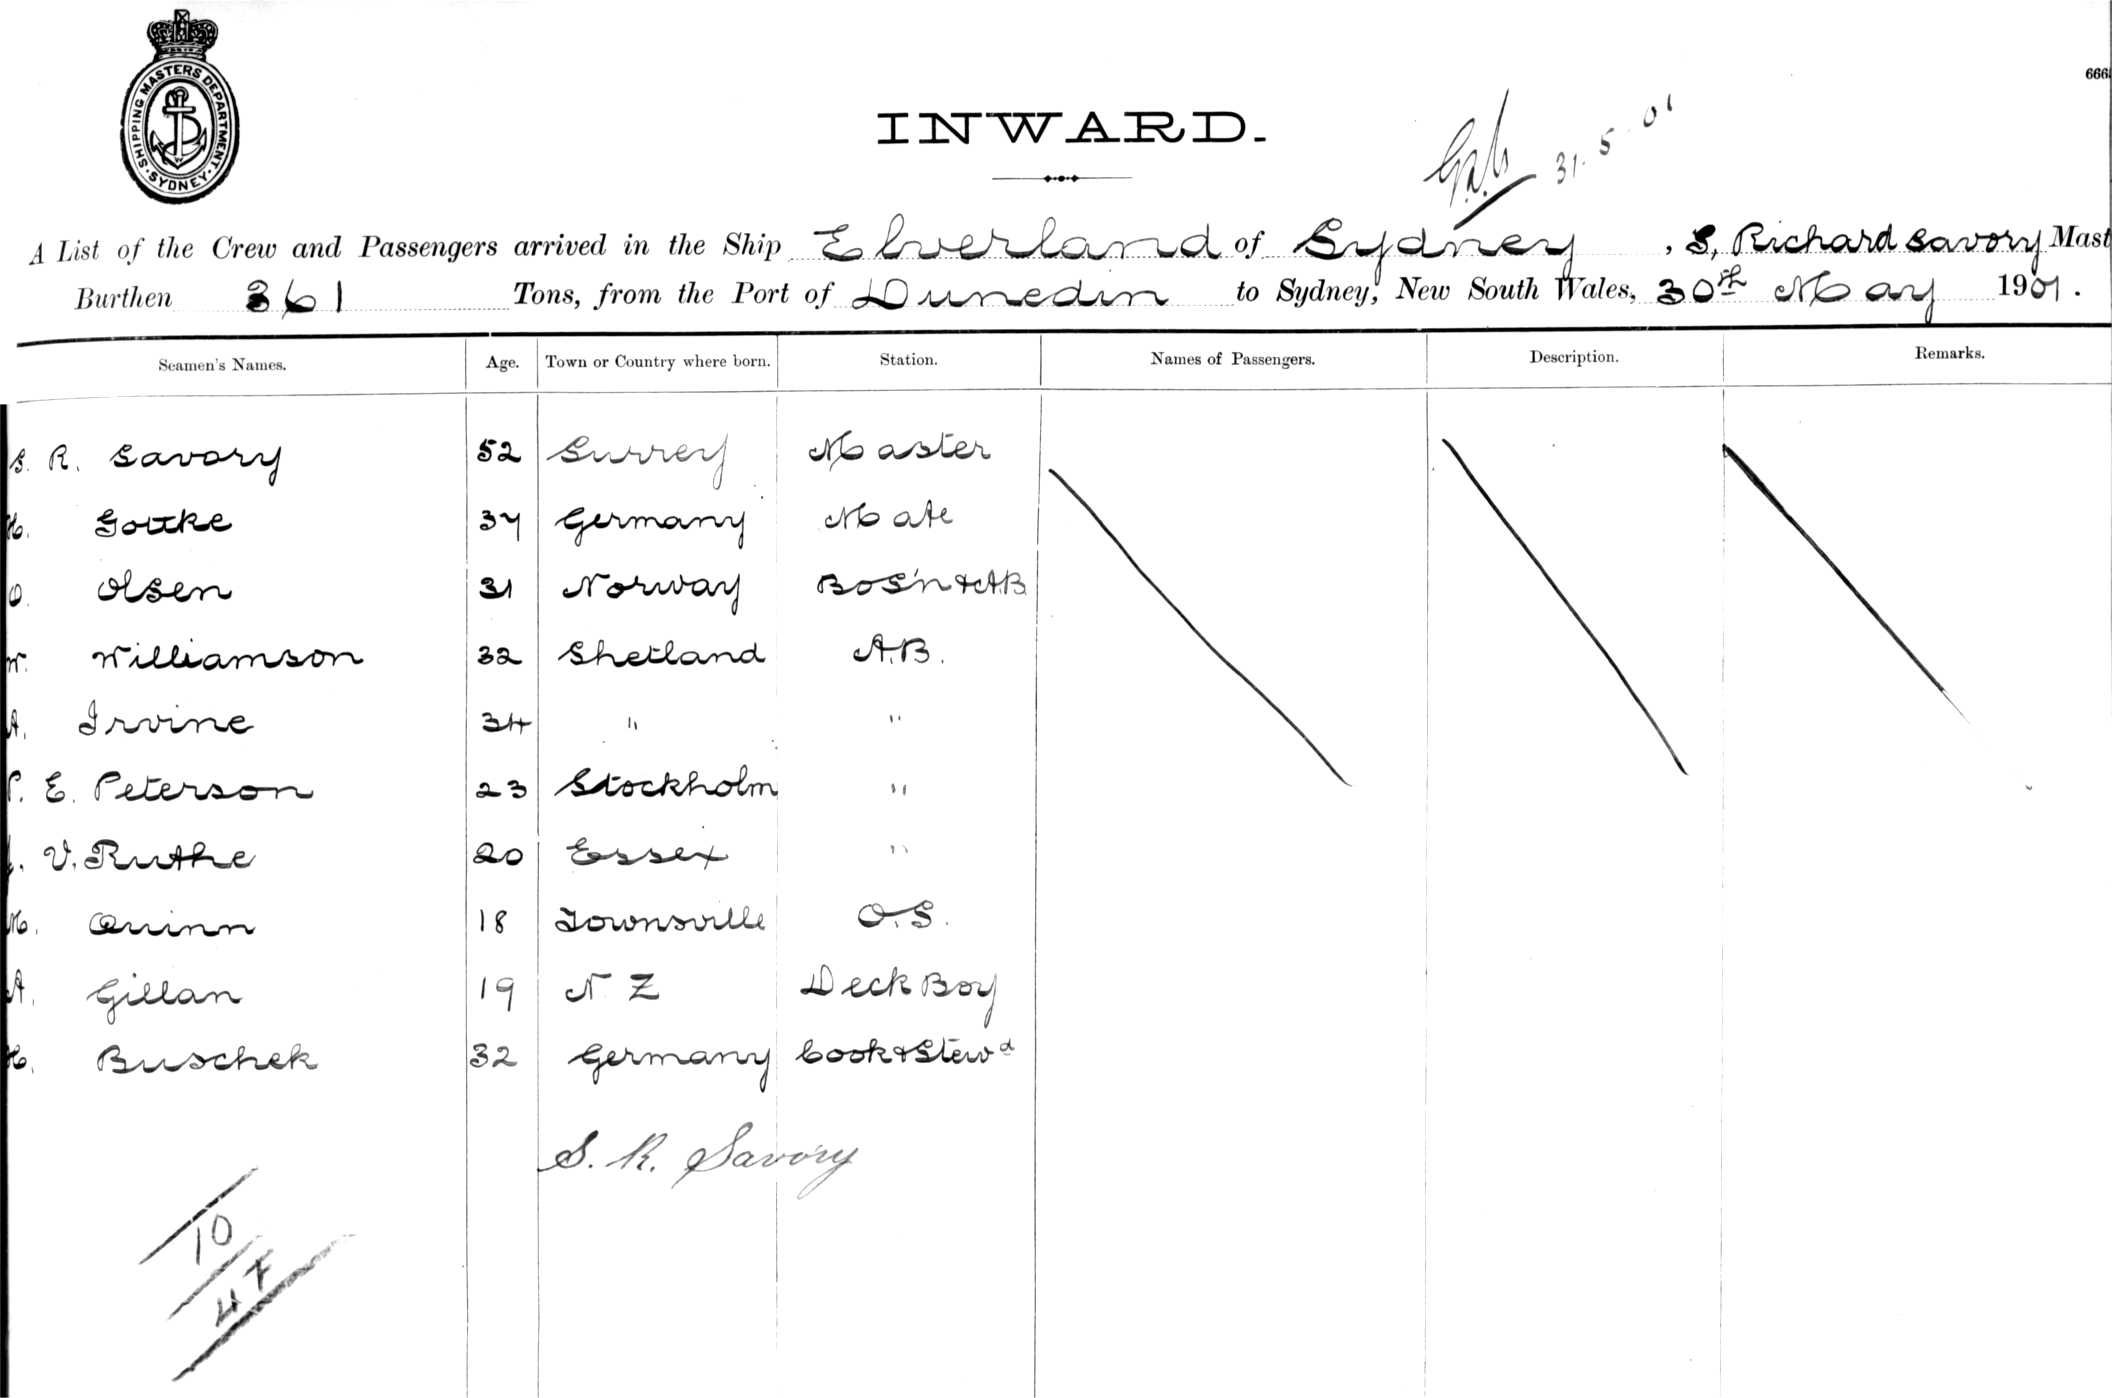 SHIPPING MASTERS DEPARTMENT
SYDNEY
666
INWARD.
31.5.01
A List of the Crew and Passengers arrived in the Ship Elverland of Sydney, S, Richard Savory Mast
Burthen 361 Tons, from the Port of Dunedin to Sydney, New South Wales, 30th May 1901.
Seamen's Names. Age. Town or Country where born. Station. Names of Passengers. Description. Remarks.
S. R. Savory 52 Surrey Master
H. Gottke 37 Germany Mate
O. Olsen 31 Norway Bos'n & A.B.
W. Williamson 32 Shetland A.B.
A. Irvine 34 " "
P. E. Peterson 23 Stockholm "
V. Ruthe 20 Essex "
M. Quinn 18 Townsville O.S.
A. Gillan 19 N Z Deck Boy
H. Buschek 32 Germany Cook & Stewd
S. R. Savory
10
47